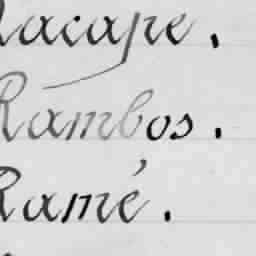 Racape.
Rambos.
Ramé.